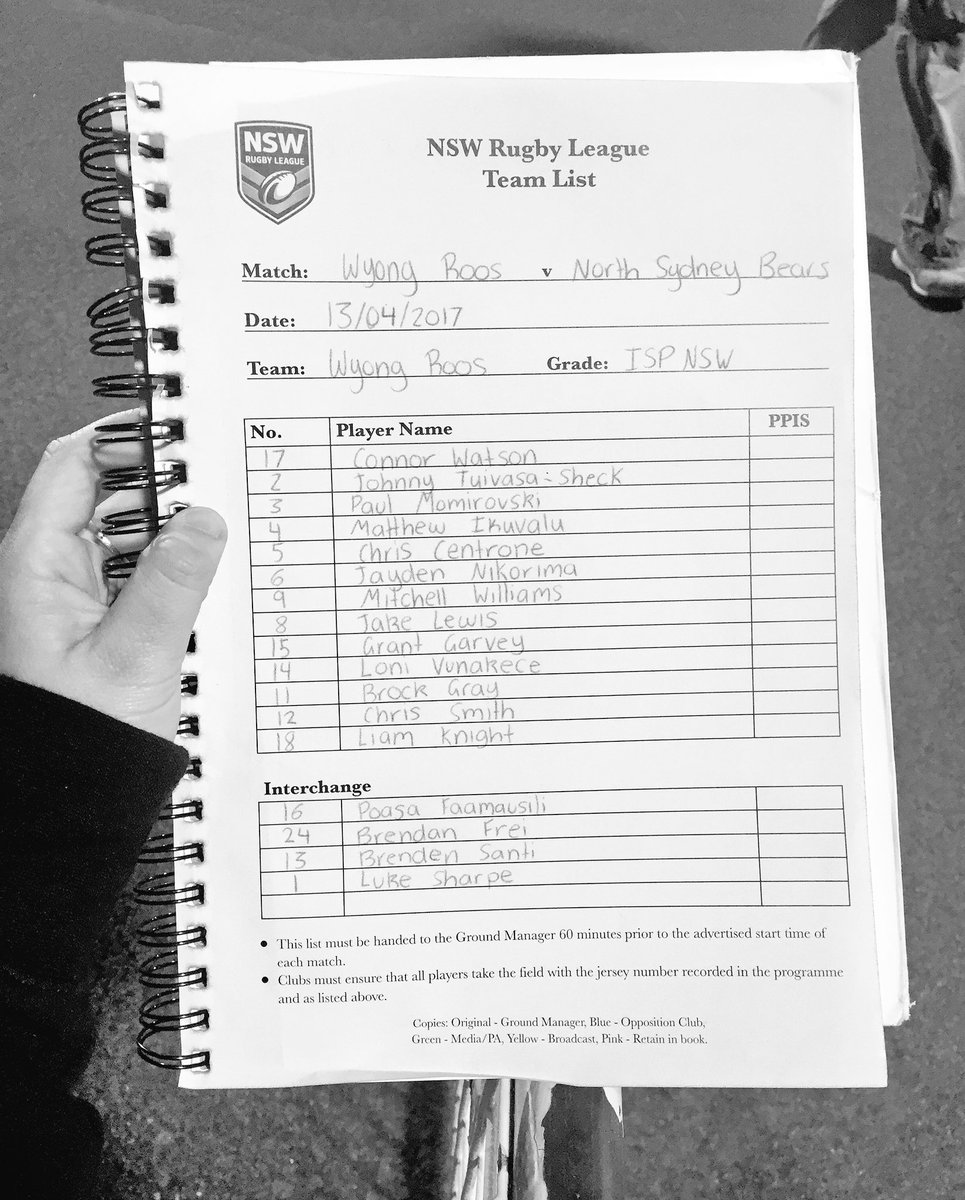 NSW
RUGBY LEAGUE
NSW Rugby League
Team List
Match: Wyong Roos v North Sydney Bears
Date: 13/04/2017
Team: Wyong Roos Grade: ISP NSW
No. Player Name PPIS
17 Connor Watson
2 Johnny Tuivasa-Sheck
3 Paul Momirovski
4 Matthew Ikuvalu
5 Chris Centrone
6 Jayden Nikorima
9 Mitchell Williams
8 Jake Lewis
15 Grant Garvey
14 Loni Vunakece
11 Brock Gray
12 Chris Smith
18 Liam Knight
Interchange
16 Poasa Faamausili
24 Brendan Frei
13 Brenden Santi
1 Luke Sharpe
• This list must be handed to the Ground Manager 60 minutes prior to the advertised start time of
each match.
• Clubs must ensure that all players take the field with the jersey number recorded in the programme
and as listed above.
Copies: Original - Ground Manager, Blue - Opposition Club,
Green - Media/PA, Yellow - Broadcast, Pink - Retain in book.